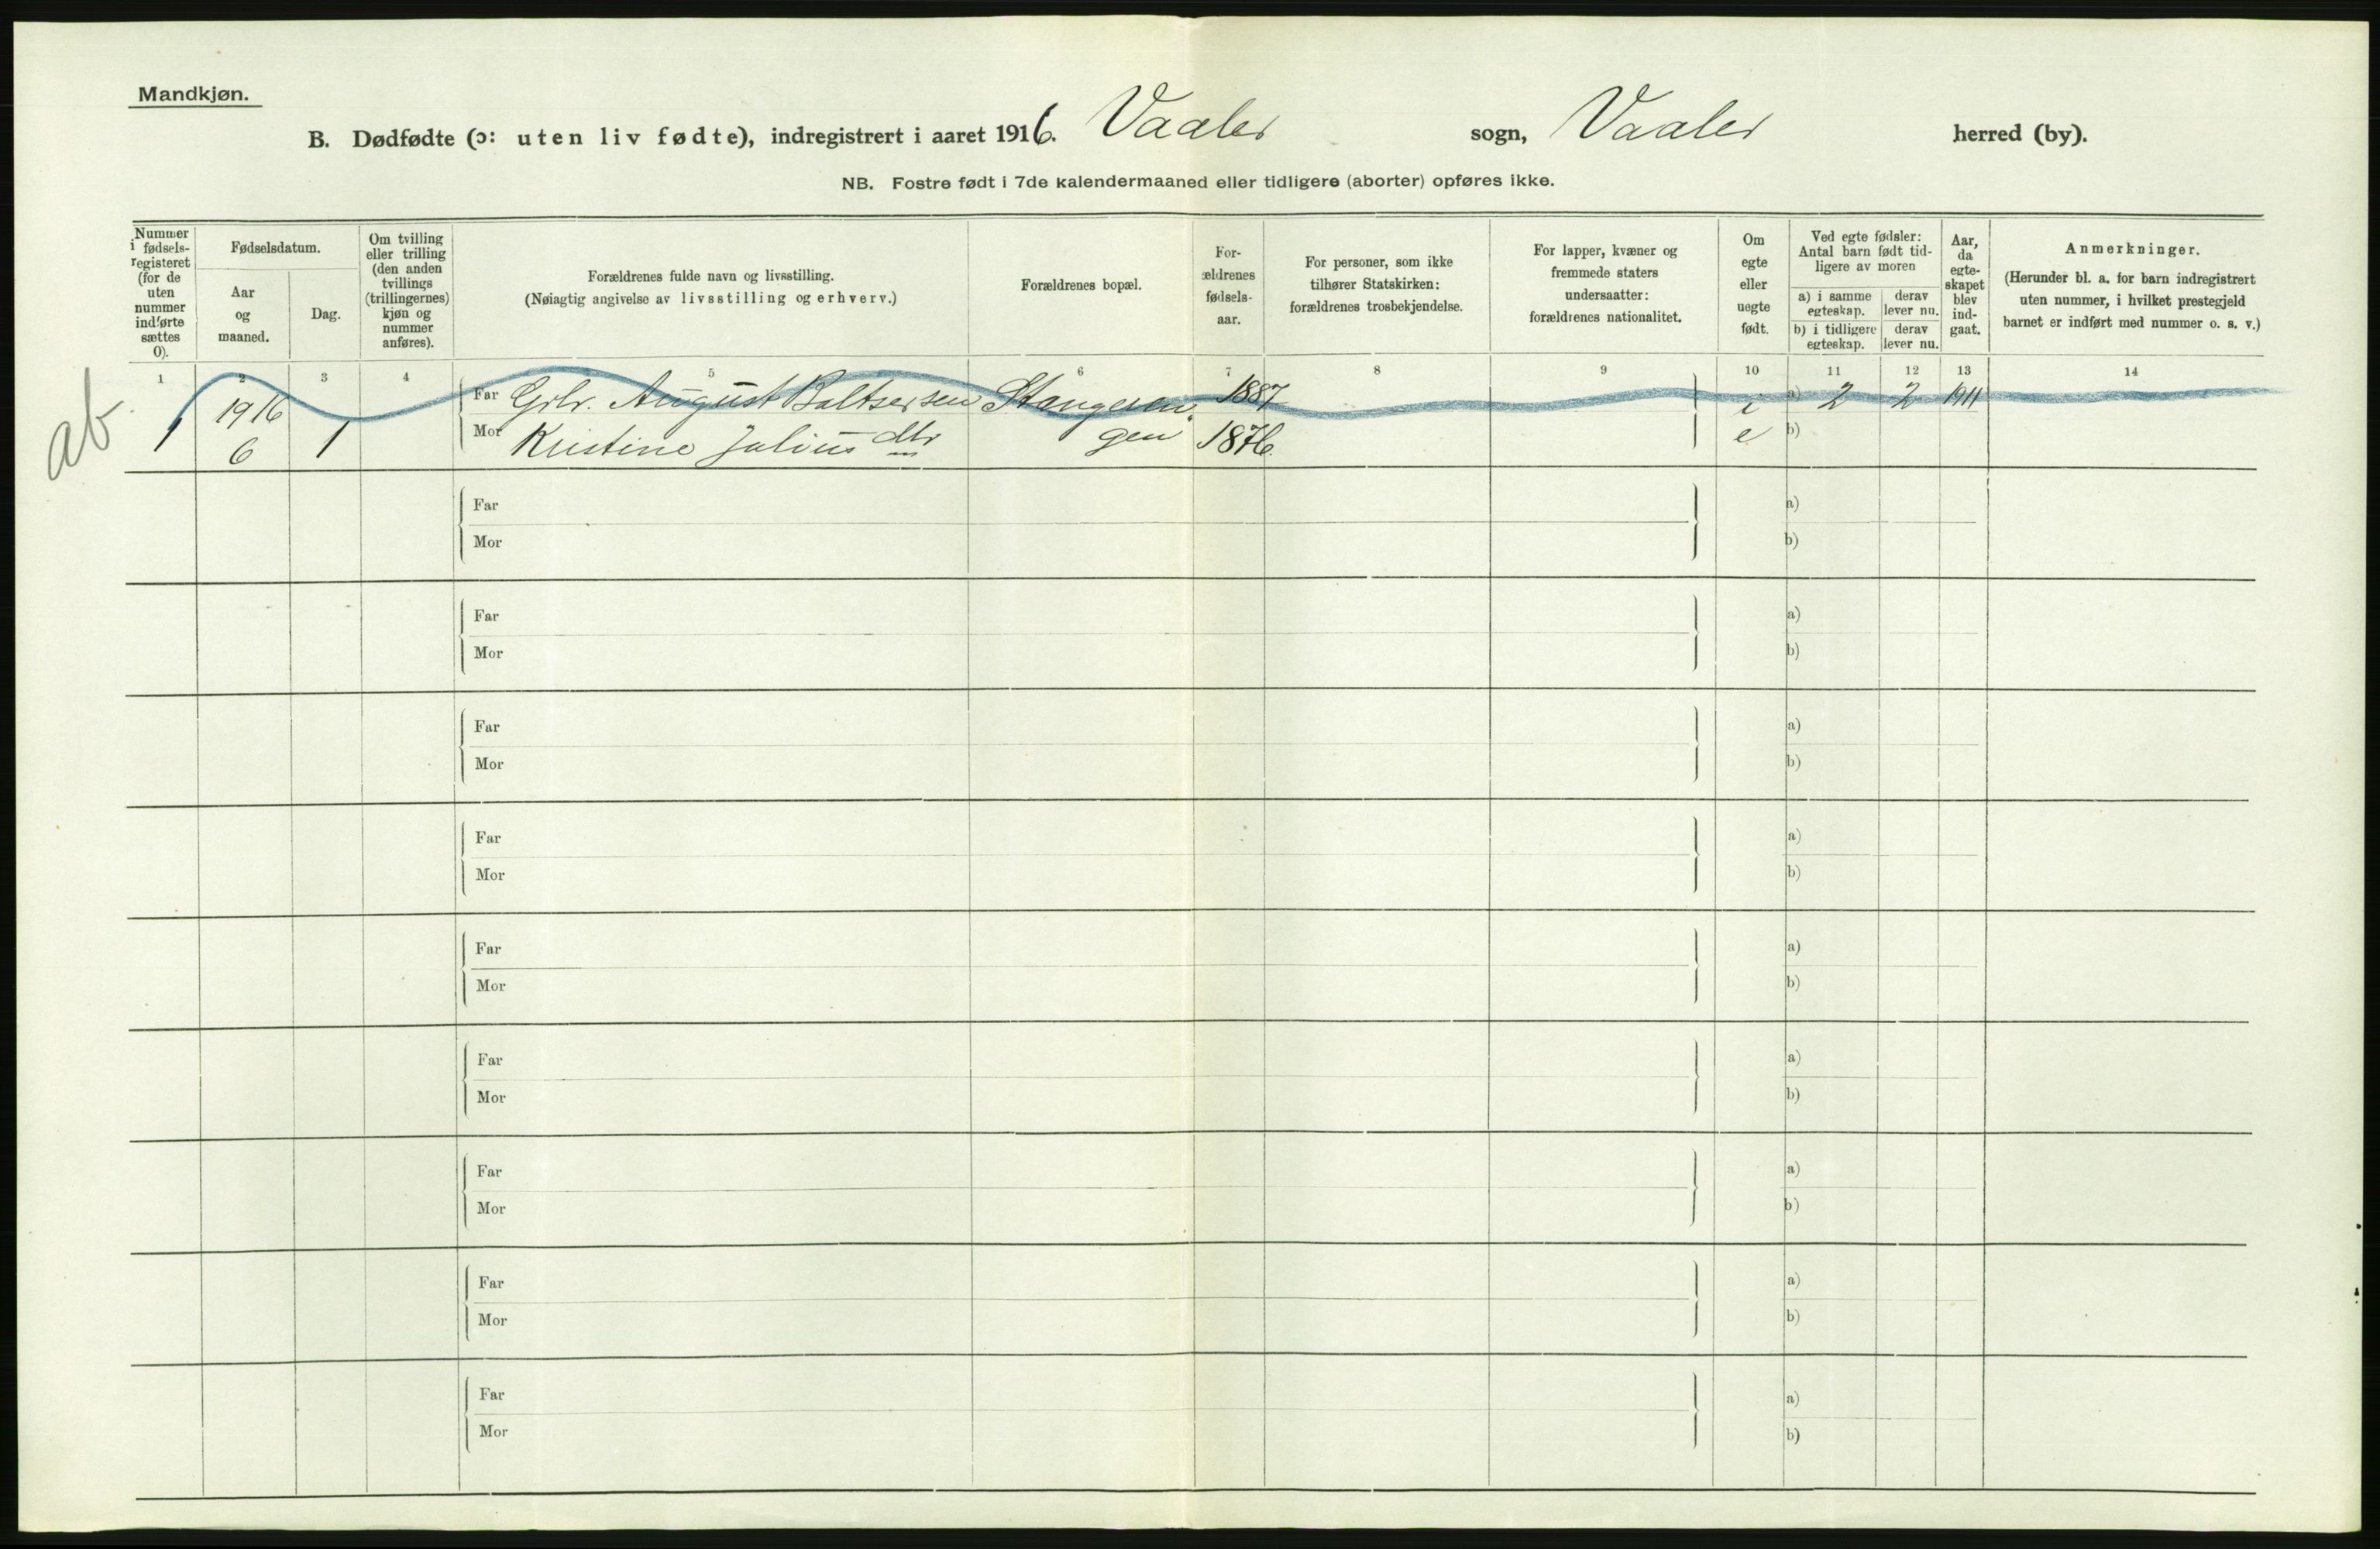 Mandkjøn.
B. Dødfødte (ɔ: uten liv fødte), indregistrert i aaret 1916. Vaaler sogn, Vaaler herred (by).
NB. Fostre født i 7de kalendermaaned eller tidligere (aborter) opføres ikke.
Nummer
i fødsels-
registeret
(for de
uten
nummer
indførte
sættes
0).
Fødselsdatum.
Aar
og
maaned.
Dag.
Om tvilling
eller trilling
(den anden
tvillings
(trillingernes)
kjøn og
nummer
anføres).
Forældrenes fulde navn og livsstilling.
(Nøiagtig angivelse av livsstilling og erhverv.)
Forældrenes bopæl.
For-
ældrenes
fødsels-
aar.
For personer, som ikke
tilhører Statskirken:
forældrenes trosbekjendelse.
For lapper, kvæner og
fremmede staters
undersaatter:
forældrenes nationalitet.
Om
egte
eller
uegte
født.
Ved egte fødsler:
Antal barn født tid-
ligere av moren
a) i samme
egteskap.
derav
lever nu.
b) i tidligere
egteskap.
derav
lever nu.
Aar,
da
egte-
skapet
blev
ind-
gaat.
Anmerkninger.
(Herunder bl. a. for barn indregistrert
uten nummer, i hvilket prestegjeld
barnet er indført med nummer o. s. v.)
1 2 3 4 5 6 7 8 9 10 11 12 13 14
ab.
1 1916
6 1
Far Grbr. August Baltsersen 1887 a) 2 2 1911
Mor Kristine Julius dtr gen 1876 e b)
Far a)
Mor b)
Far a)
Mor b)
Far a)
Mor b)
Far a)
Mor b)
Far a)
Mor b)
Far a)
Mor b)
Far a)
Mor b)
Far a)
Mor b)
Far a)
Mor b)